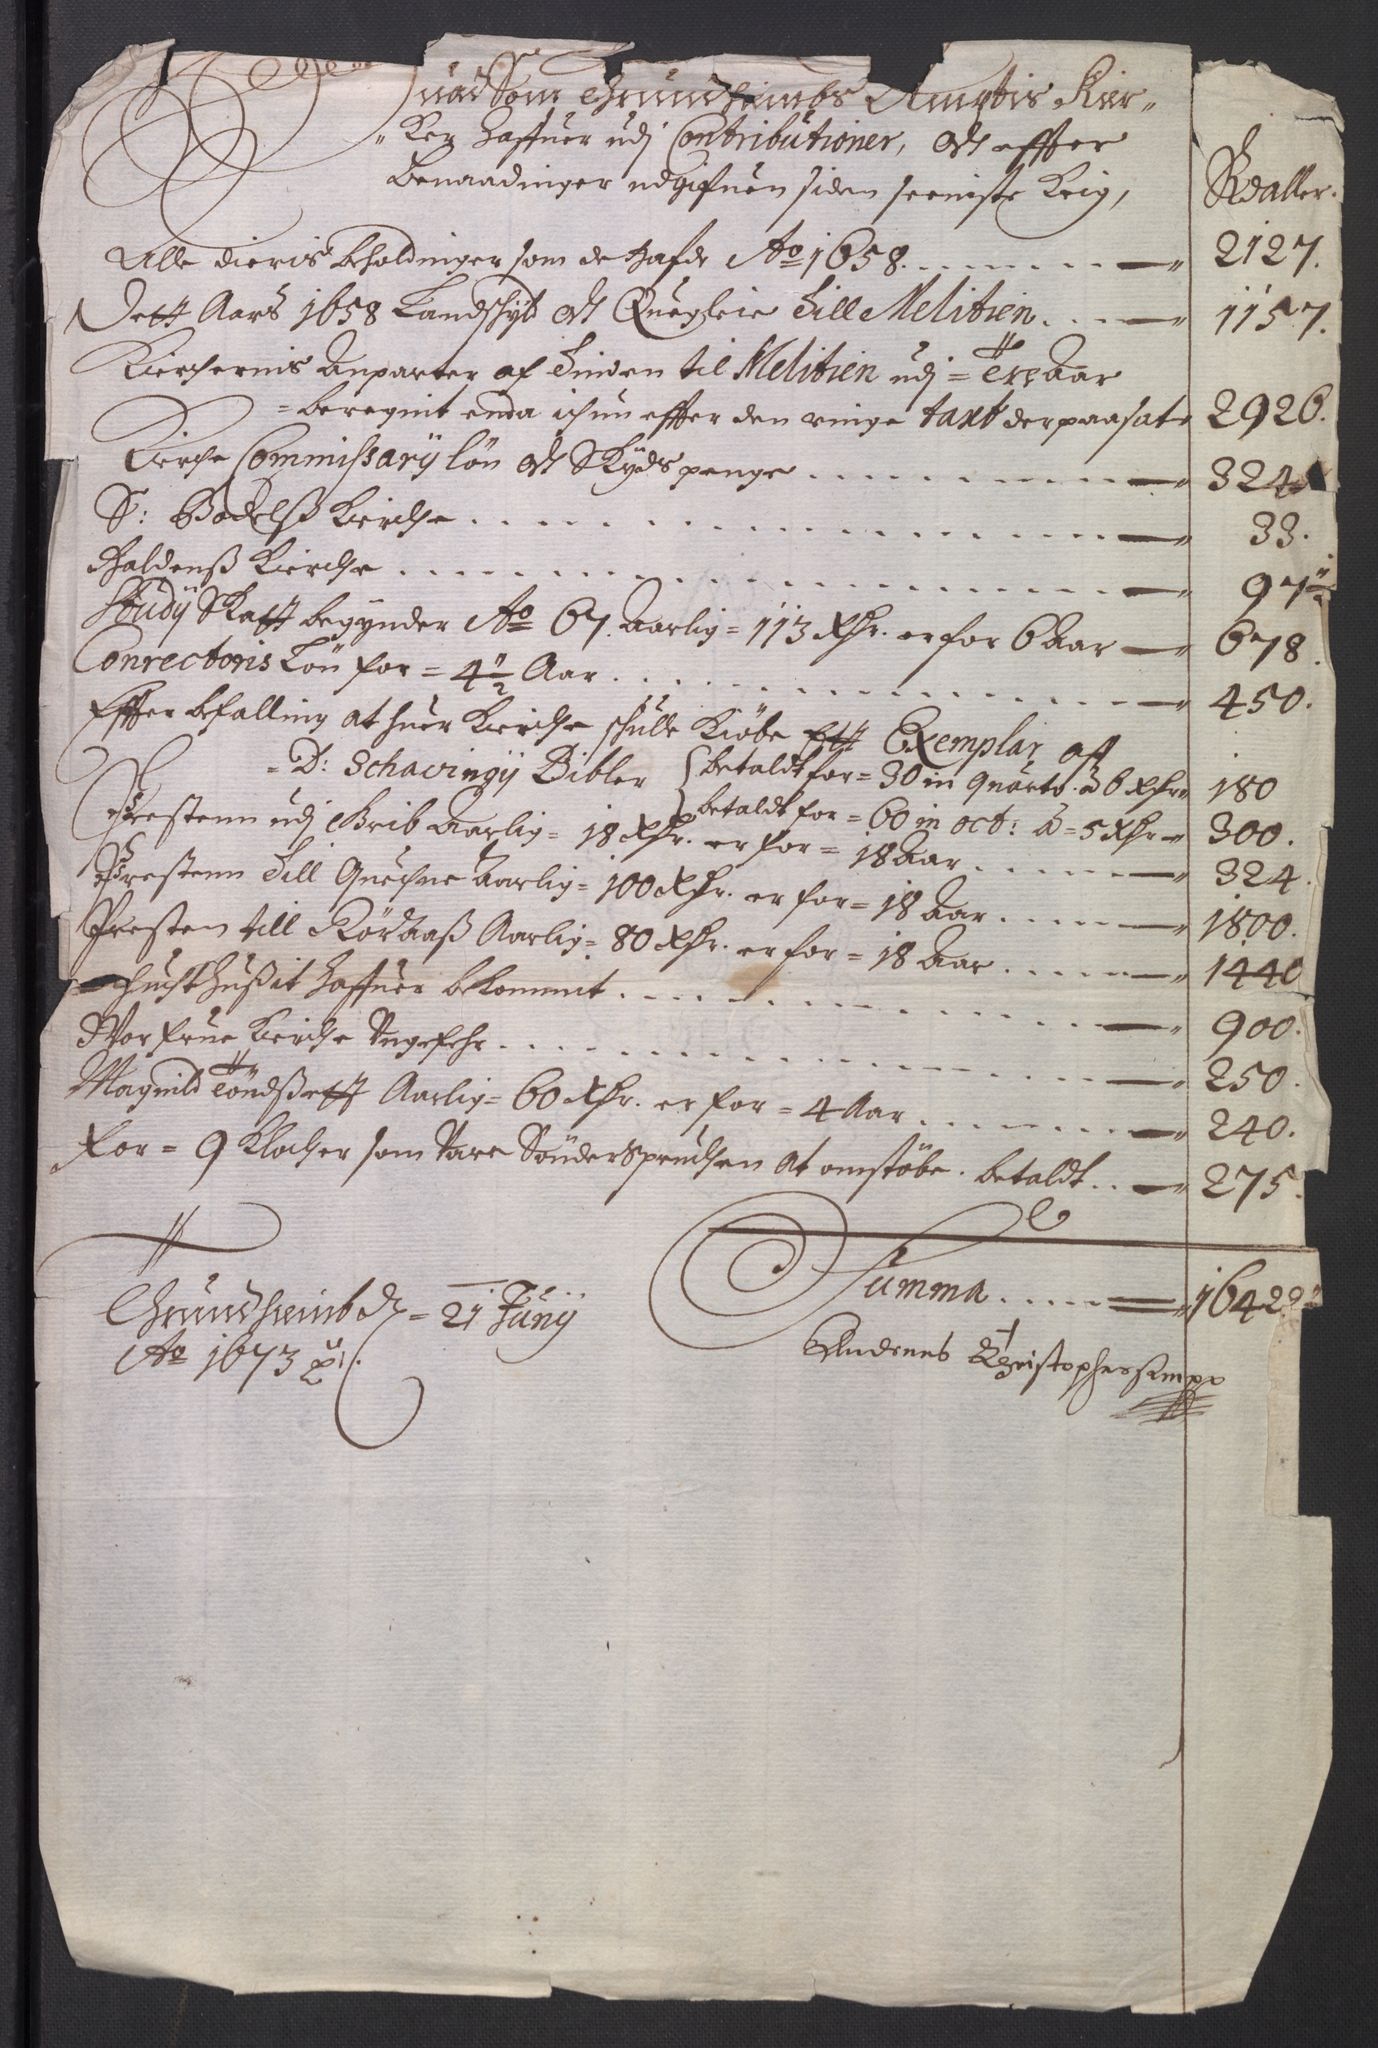 Huad Som Trundheimbs Amptis Kier-
ker haffuer udj Contributioner, och effter
Benaadinger udgifuen siden seeniste Krig,
Rdaller.
Alle dieris beholdinger som de hafde Ao 1658 . . . 2127.
Dett Aars 1658 Landschyld och Quegleie Till Melitien . . . 1157.
Kierchernis Anparter af Tinden til Melitien udj = Tre Aar
= beregnit enda ichun effter den ringe taxt derpaa sat 2926.
Kirche Commissarij løn och Skyds penge . . . 324
S: Bodelss Kierche . . . 33.
Haldenss Kierche . . . 97 1/2
Studij Skatt begynder Ao 67. Aarlig = 113 Rdr. er for 6 Aar 678.
Conrectoris Løn for = 4 1/2 Aar . . . 450.
Effter befalling at huer Kierche schulle Kiøbe Ett Exemplar aff
= D: Schavingij Bibler { betaldt for = 30 in quarto. à 6 Rdr 180
betaldt for = 60 in oct: à = 5 Rdr 300.
Prestenn udj Grib Aarlig = 18 Rdr. er for = 18 Aar . . . 324.
Prestenn Till Quechne Aarlig = 100 Rdr. er for = 18 Aar . . . 1800.
Presten till Røraass Aarlig = 80 Rdr. er for = 18 Aar . . . 1440
Tuchthussit haffuer bekommit . . . 900.
Vor Frue Kierche Ungefehr . . . 250.
Magnild Tøndssett Aarlig = 60 Rdr. er for = 4 Aar . . . 240.
For = 9 Klocher som Vare Sønder Sprucken at omstøbe. betaldt . . 275.
Summa . . . 16422
Trundheimb d = 21 Junij
Ao 1673
Andreas Christophersen